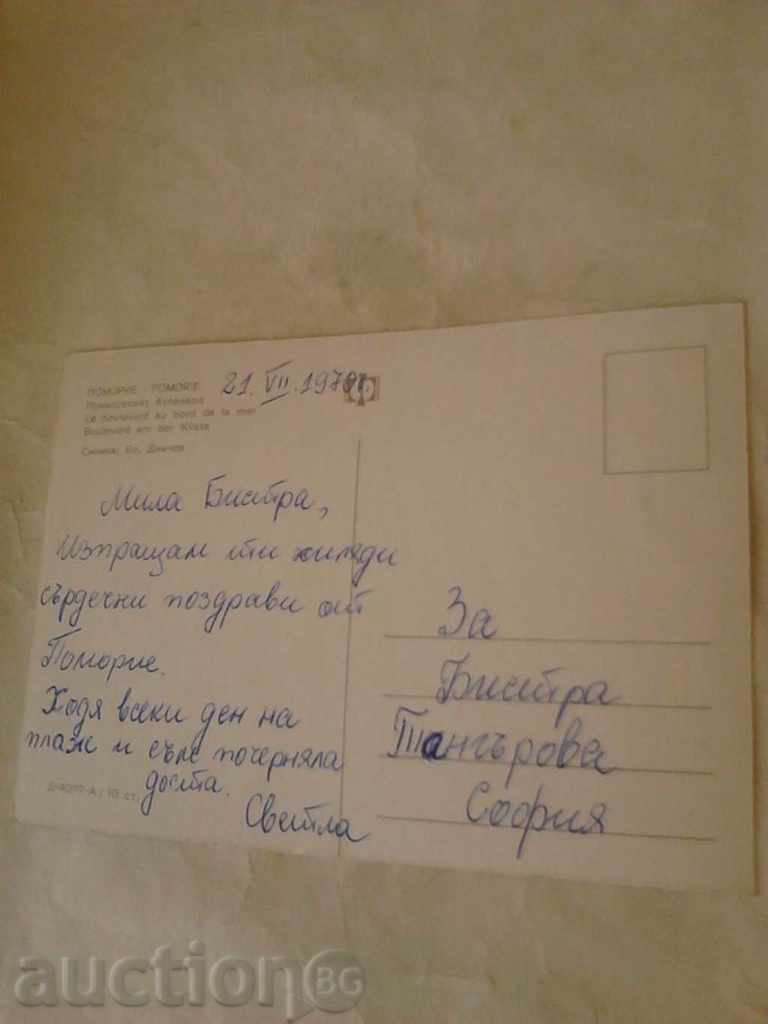 ПОМОРИЕ - POMORIE
Le boulevard au bord de la mer
Boulevard am der Küste
Снимка: Вл. Димчев
21. VII. 1970г.
Мила Бистра,
Изпращам ти хиляди
сърдечни поздрави от
Поморие.
Ходя всеки ден на
плаж и съм почерняла
доста.
Светла
За
Бистра
Тангърова
София
auction BG